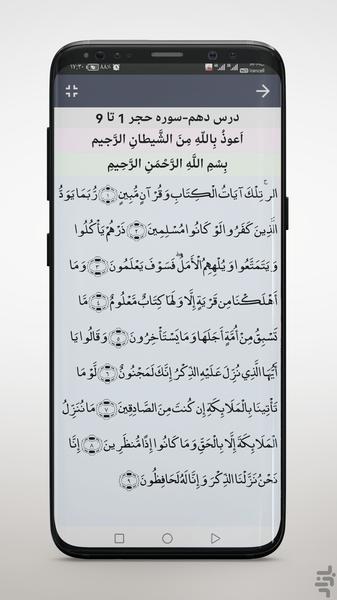 ۱۷:۳۰ ۸۸%
Irancell
درس دهم-سوره حجر 1 تا 9
اَعوذُ بِاللّهِ مِنَ الشَّيطانِ الرَّجيم
بِسْمِ اللَّهِ الرَّحْمَنِ الرَّحِيمِ
الر ۚ تِلْكَ آيَاتُ الْكِتَابِ وَقُرْآنٍ مُّبِينٍ ﴿۱﴾ رُّبَمَا يَوَدُّ
الَّذِينَ كَفَرُوا لَوْ كَانُوا مُسْلِمِينَ ﴿۲﴾ ذَرْهُمْ يَأْكُلُوا
وَيَتَمَتَّعُوا وَيُلْهِهِمُ الْأَمَلُ ۖ فَسَوْفَ يَعْلَمُونَ ﴿۳﴾ وَمَا
أَهْلَكْنَا مِن قَرْيَةٍ إِلَّا وَلَهَا كِتَابٌ مَّعْلُومٌ ﴿۴﴾ مَّا
تَسْبِقُ مِنْ أُمَّةٍ أَجَلَهَا وَمَا يَسْتَأْخِرُونَ ﴿۵﴾ وَقَالُوا يَا
أَيُّهَا الَّذِي نُزِّلَ عَلَيْهِ الذِّكْرُ إِنَّكَ لَمَجْنُونٌ ﴿۶﴾ لَّوْ مَا
تَأْتِينَا بِالْمَلَائِكَةِ إِن كُنتَ مِنَ الصَّادِقِينَ ﴿۷﴾ مَا نُنَزِّلُ
الْمَلَائِكَةَ إِلَّا بِالْحَقِّ وَمَا كَانُوا إِذًا مُّنظَرِينَ ﴿۸﴾ إِنَّا
نَحْنُ نَزَّلْنَا الذِّكْرَ وَإِنَّا لَهُ لَحَافِظُونَ ﴿۹﴾
بازار